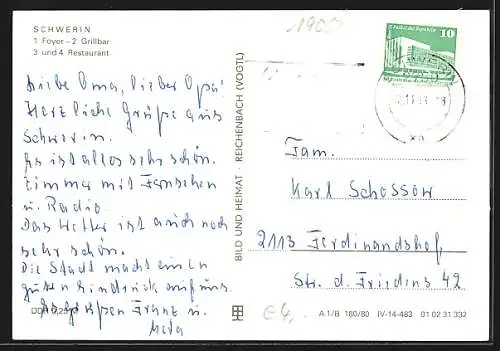 SCHWERIN
1 Foyer – 2 Grillbar
3 und 4 Restaurant
Liebe Oma, lieber Opa!
Herzliche Grüße aus
Schwerin.
Es ist alles sehr schön.
Zimmer mit Fernsehen
u. Radio.
Das Wetter ist auch noch
sehr schön.
Die Stadt macht einen
guten Eindruck auf uns.
Franz u.
Meta
BILD UND HEIMAT REICHENBACH (VOGTL)
10
Fam.
Karl Schossow
2113 Ferdinandshof
Str. d. Friedens 42
€4,
A 1/B 160/80 IV-14-483 01 02 31 332